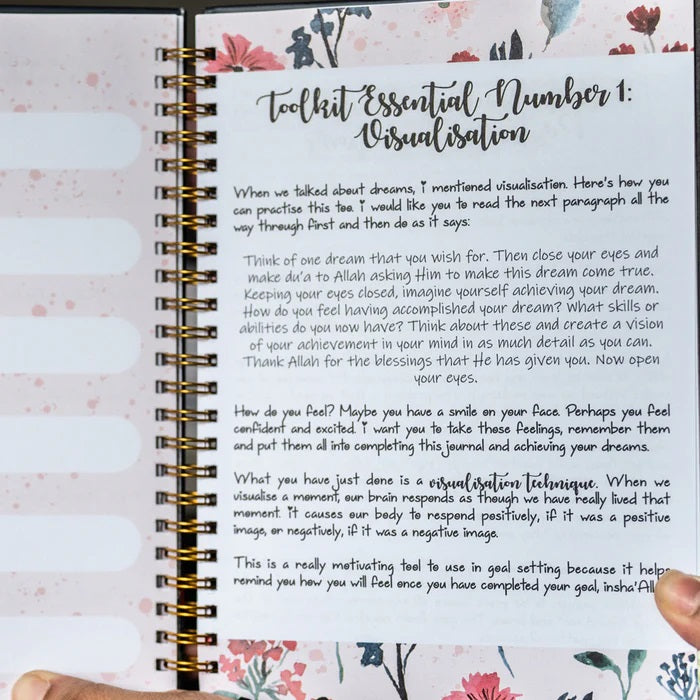 Toolkit Essential Number 1:
Visualisation
When we talked about dreams, i mentioned visualisation. Here's how you
can practise this too. i would like you to read the next paragraph all the
way through first and then do as it says:
Think of one dream that you wish for. Then close your eyes and
make du'a to Allah asking Him to make this dream come true.
Keeping your eyes closed, imagine yourself achieving your dream.
How do you feel having accomplished your dream? What skills or
abilities do you now have? Think about these and create a vision
of your achievement in your mind in as much detail as you can.
Thank Allah for the blessings that He has given you. Now open
your eyes.
How do you feel? Maybe you have a smile on your face. Perhaps you feel
confident and excited. i want you to take these feelings, remember them
and put them all into completing this journal and achieving your dreams.
What you have just done is a visualisation technique. When we
visualise a moment, our brain responds as though we have really lived that
moment. it causes our body to respond positively, if it was a positive
image, or negatively, if it was a negative image.
This is a really motivating tool to use in goal setting because it helps
remind you how you will feel once you have completed your goal,